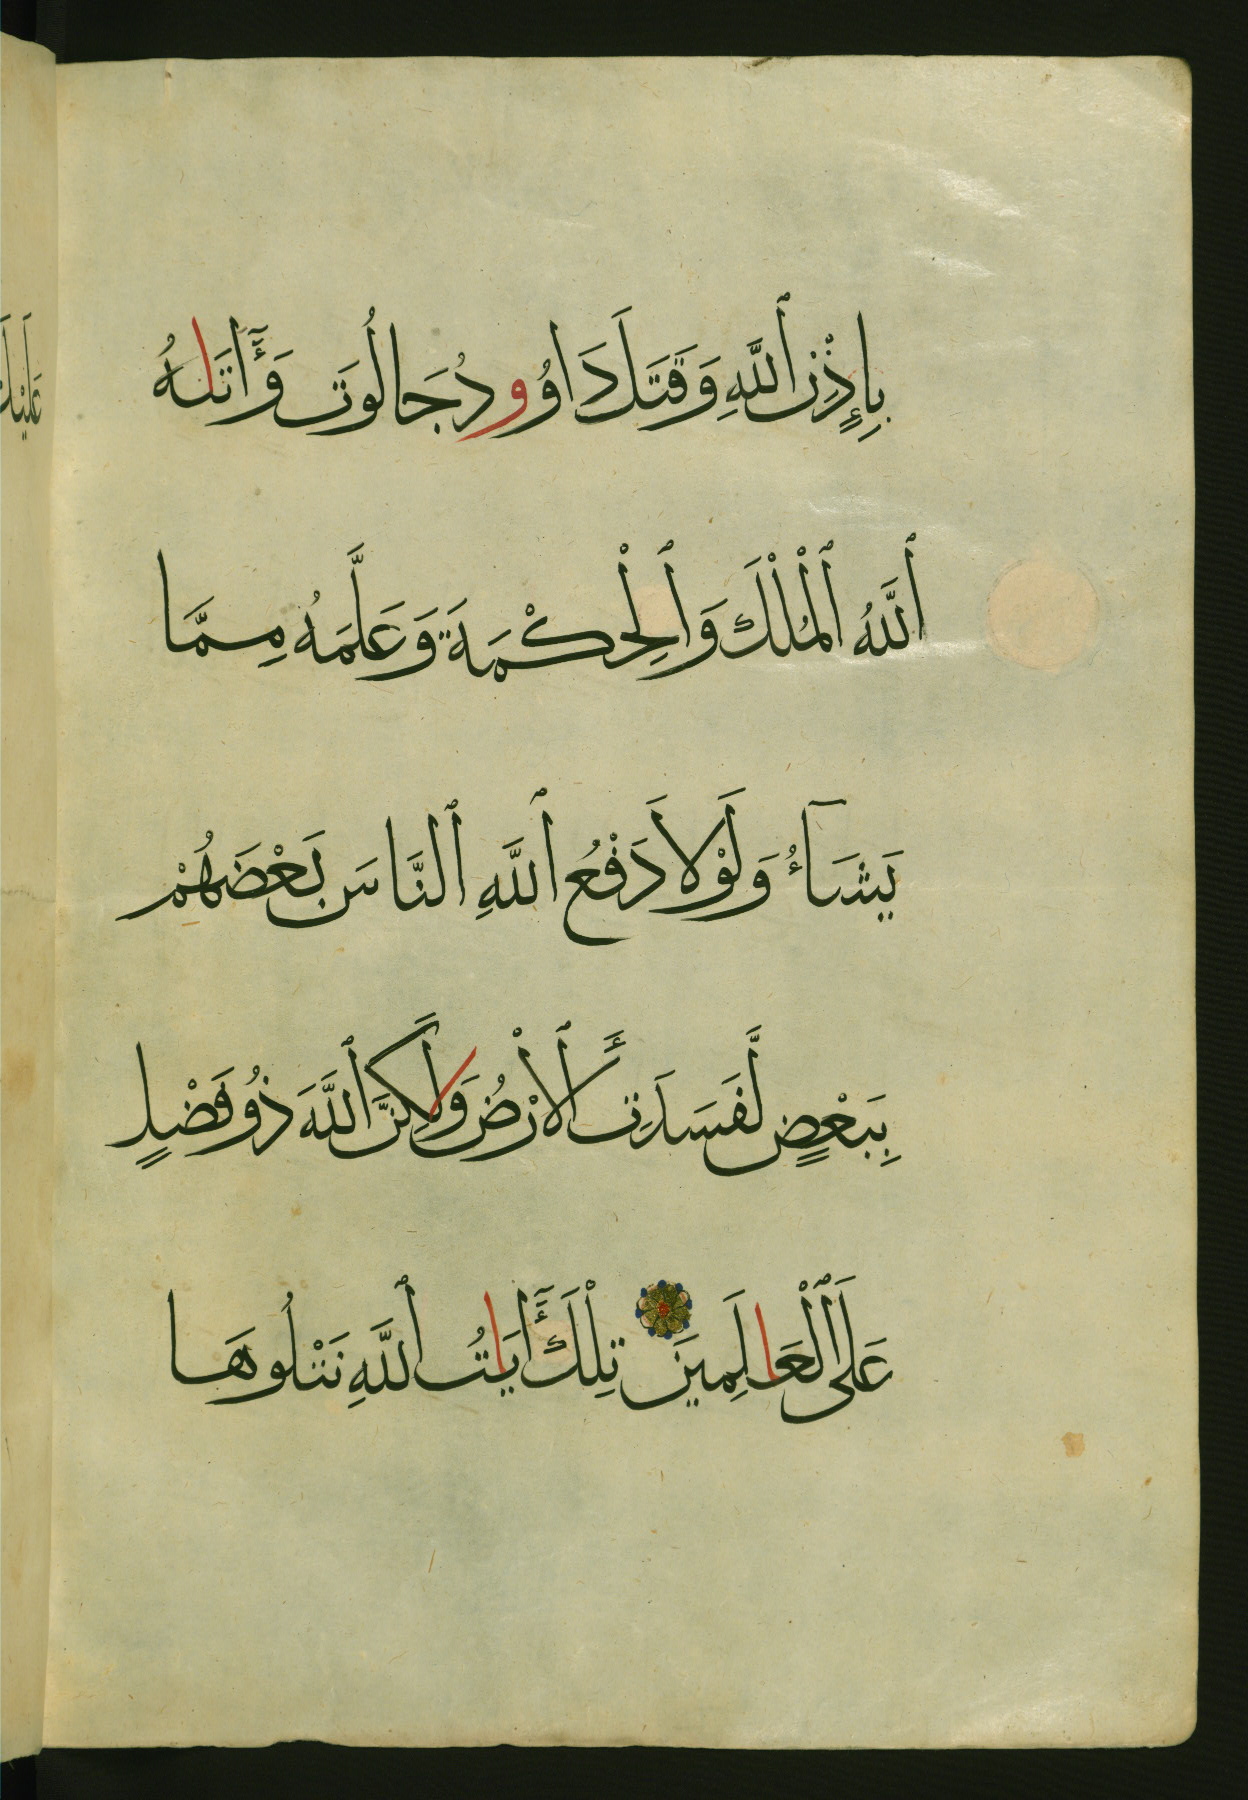 بِإِذْنِ ٱللَّهِ وَقَتَلَ دَاوُودُ جَالُوتَ وَءَاتَاهُ
ٱللَّهُ ٱلْمُلْكَ وَٱلْحِكْمَةَ وَعَلَّمَهُ مِمَّا
يَشَآءُ وَلَوْلَا دَفْعُ ٱللَّهِ ٱلنَّاسَ بَعْضَهُمْ
بِبَعْضٍ لَّفَسَدَتِ ٱلْأَرْضُ وَلَاكِنَّ ٱللَّهَ ذُو فَضْلٍ
عَلَى ٱلْعَالَمِينَ تِلْكَ ءَايَاتُ ٱللَّهِ نَتْلُوهَا